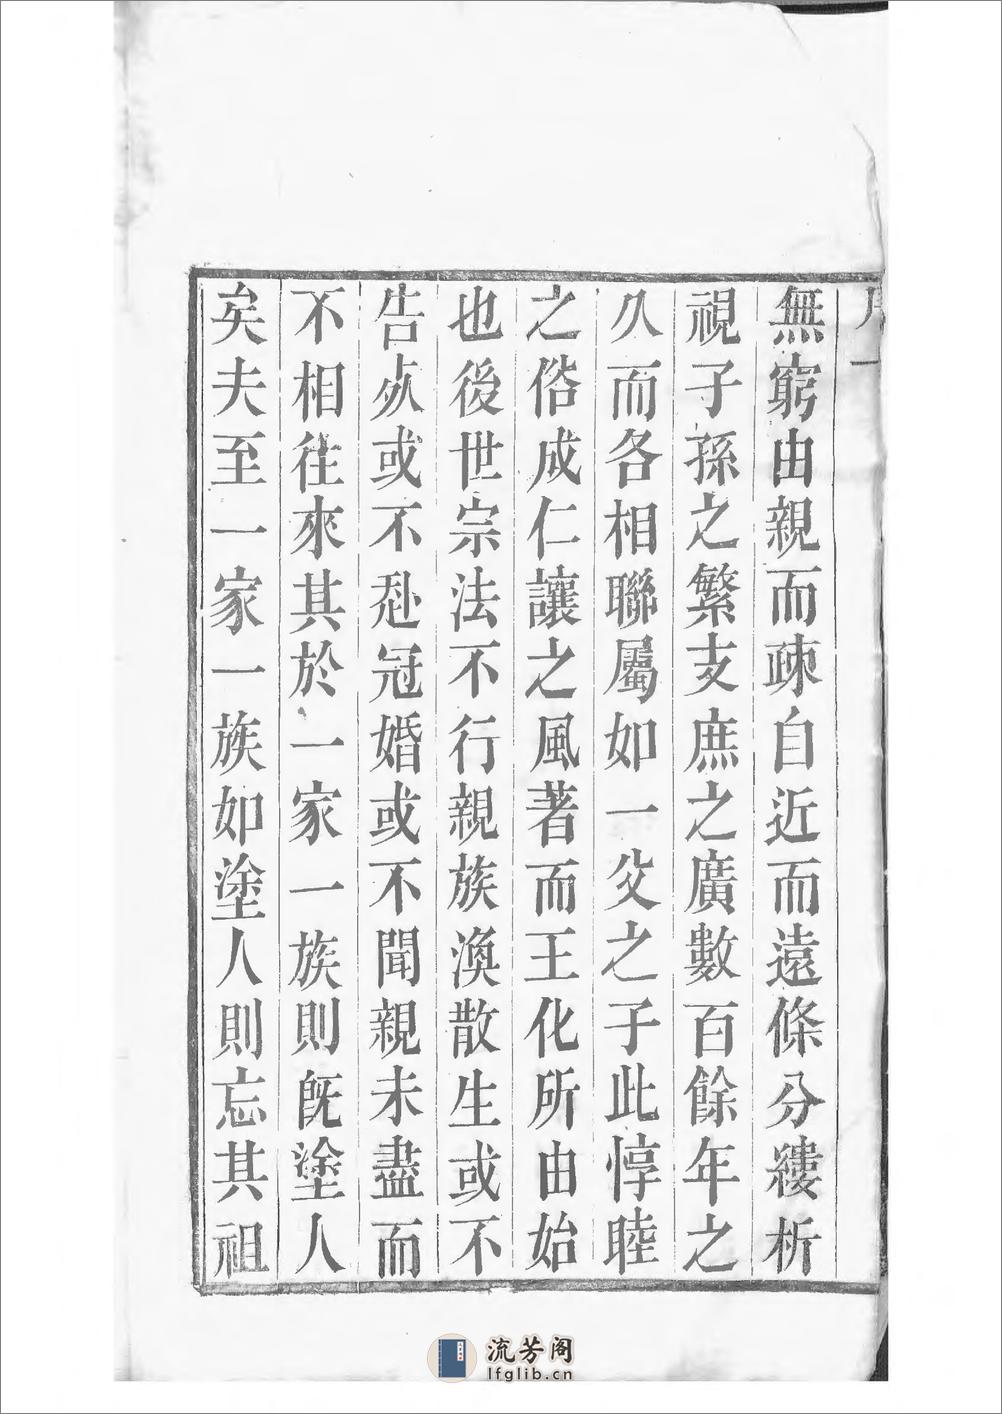 無窮由親而疎自近而遠條分縷析
視子孫之繁支庶之廣數百餘年之
久而各相聯屬如一父之子此惇睦
之俗成仁讓之風著而王化所由始
也後世宗法不行親族渙散生或不
告死或不赴冠婚或不聞親未盡而
不相往來其於一家一族則旣塗人
矣夫至一家一族如塗人則忘其祖
流芳阁
lfglib.cn